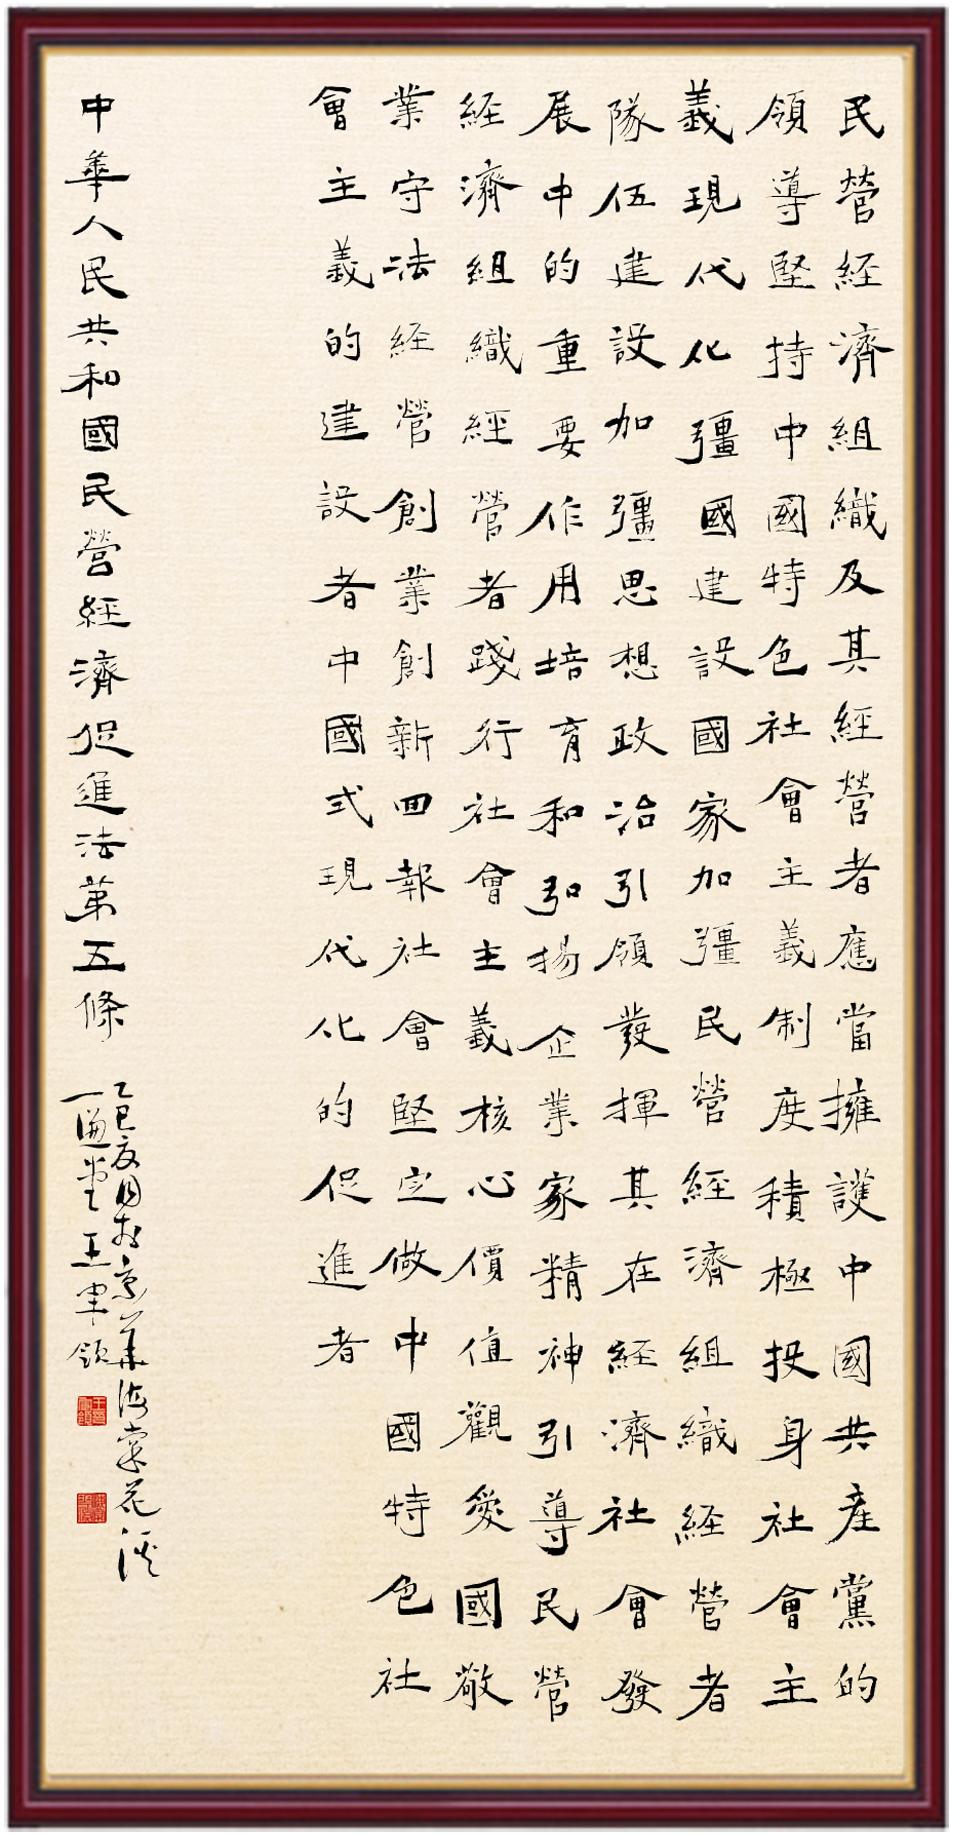 民營經濟組織及其經營者應當擁護中國共產黨的
領導堅持中國特色社會主義制度積極投身社會主
義現代化彊國建設國家加彊民營經濟組織経營者
隊伍建設加彊思想政治引領發揮其在経濟社會發
展中的重要作用培育和弘揚企業家精神引導民營
経濟組織經營者踐行社會主義核心價值觀愛國敬
業守法経營創業創新回報社會堅定做中國特色社
會主義的建設者中國式現代化的促進者
中華人民共和國民營経濟促進法第五條
乙巳夏月於京華海棠花溪
一適堂王軍領